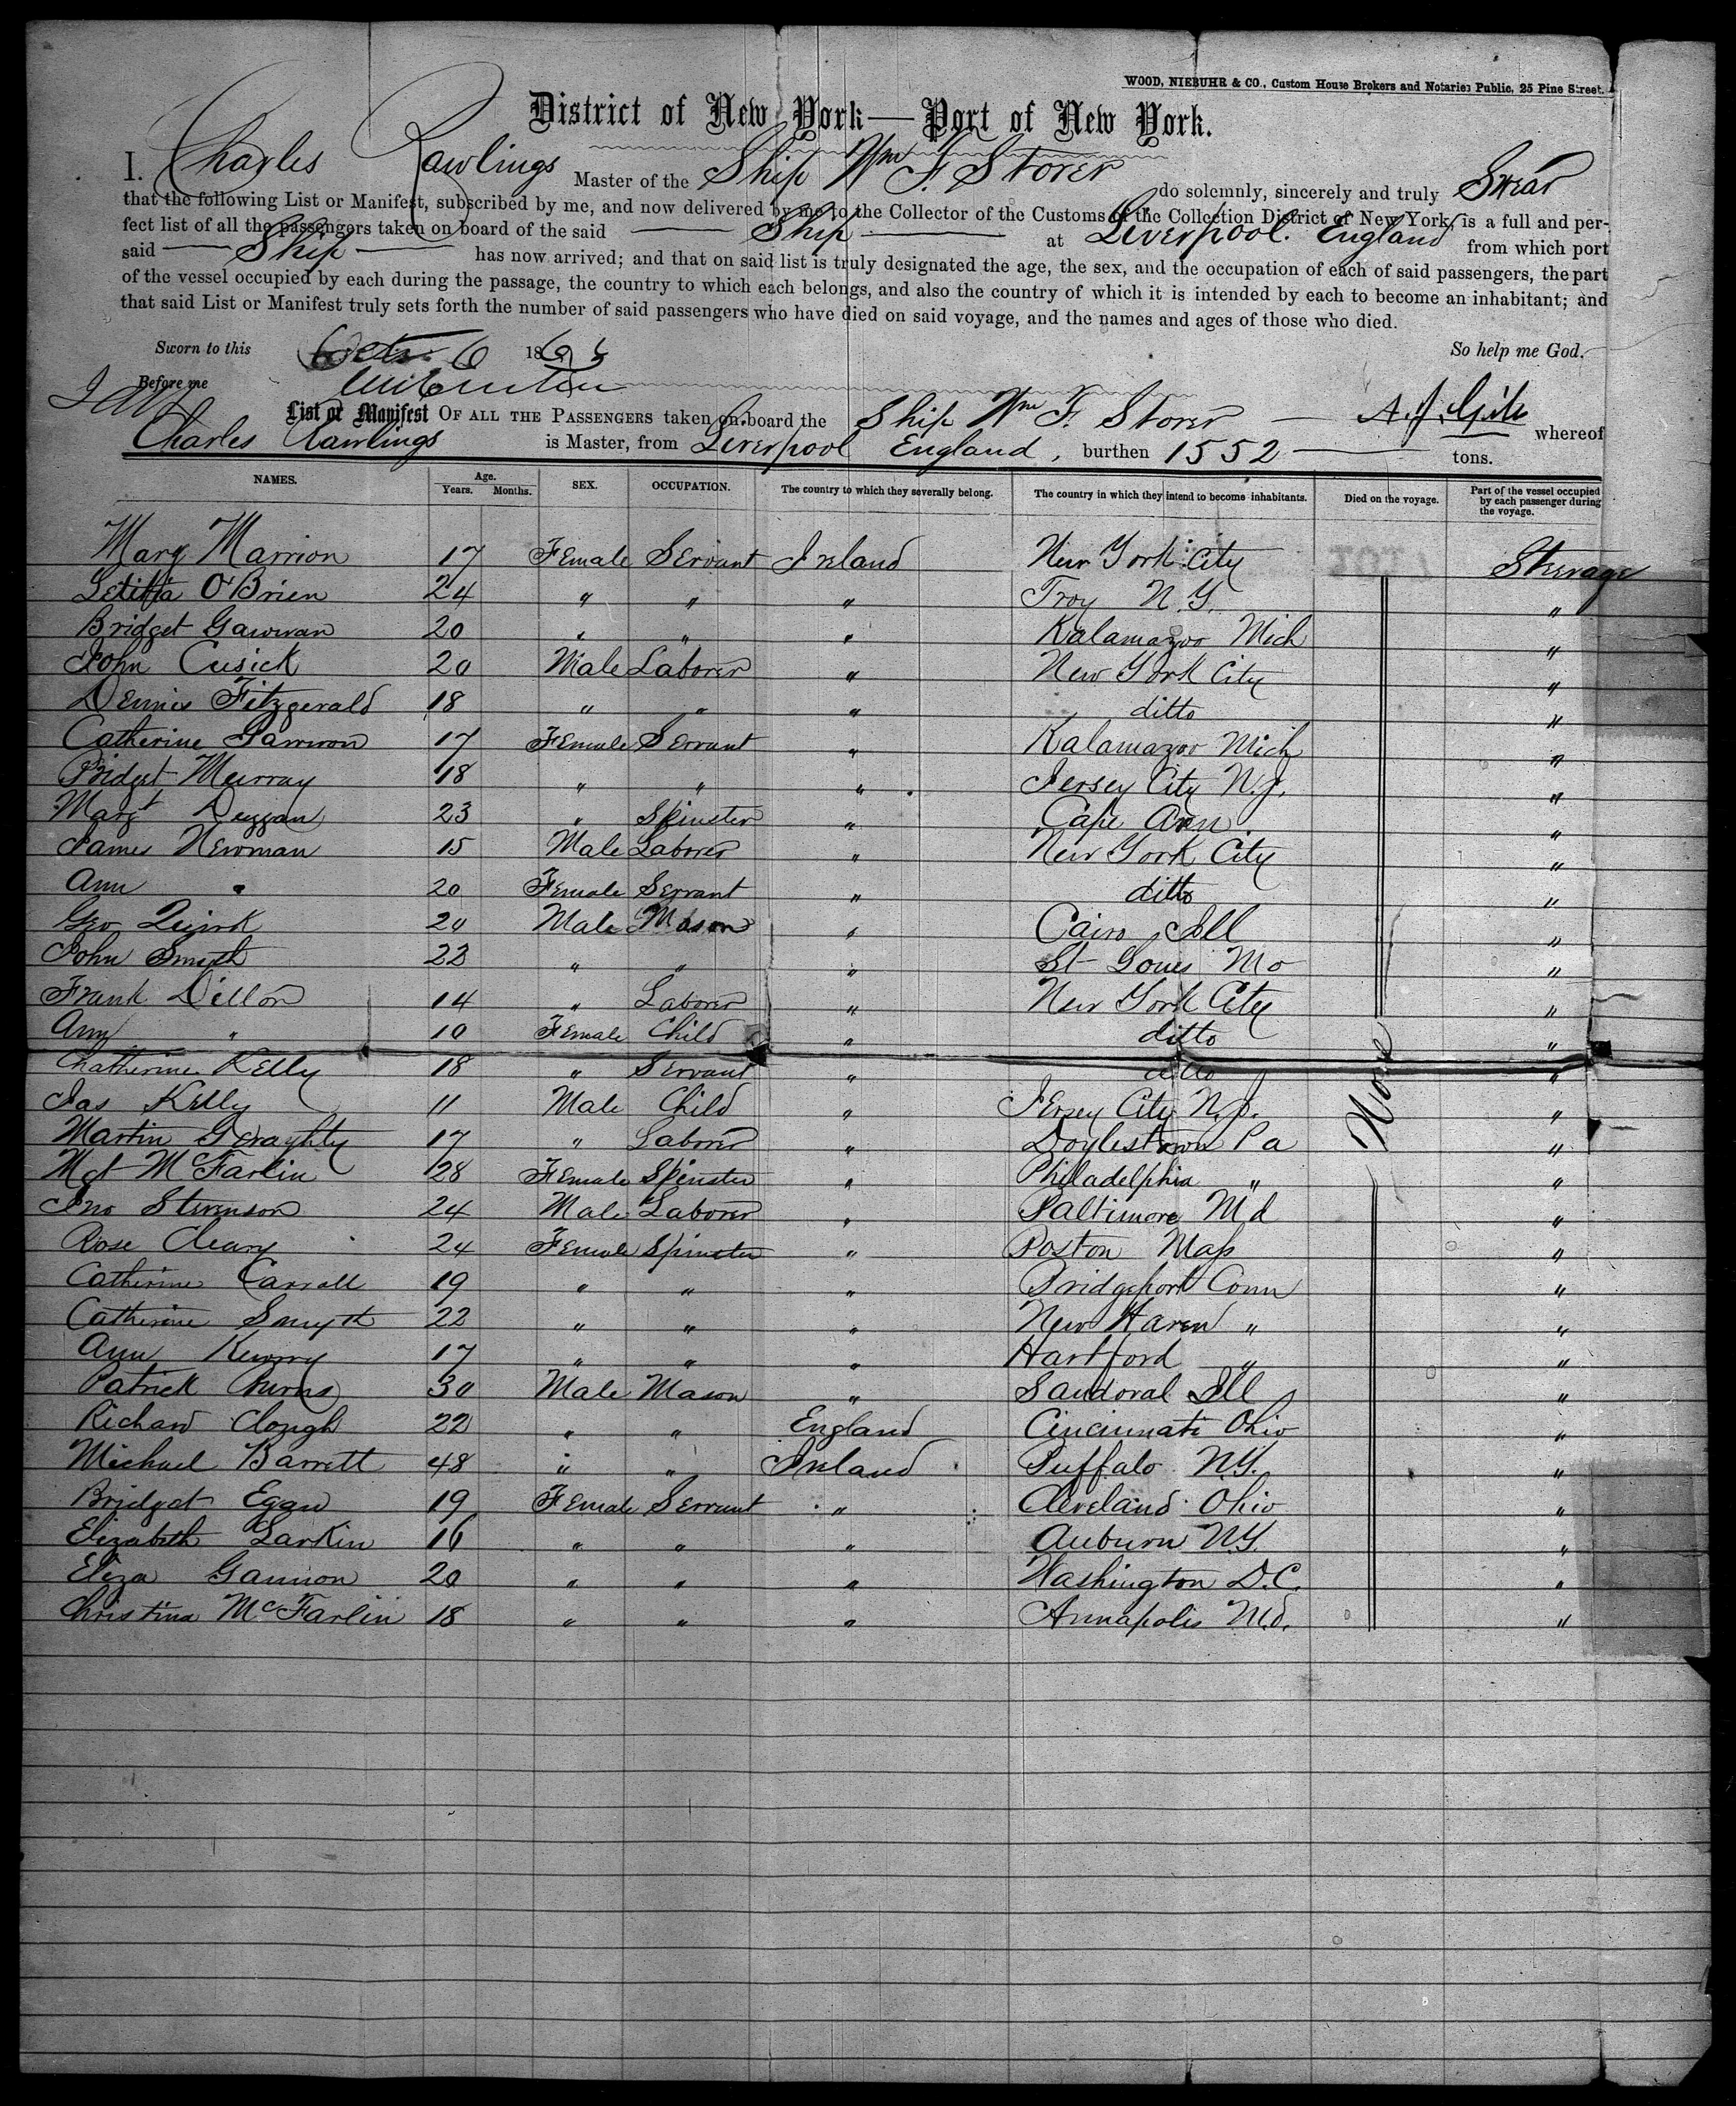 WOOD, NIEBUHR & CO., Custom House Brokers and Notaries Public, 25 Pine Street.
District of New York—Port of New York.
I. Charles Rawlings Master of the Ship Wm F. Storer do solemnly, sincerely and truly Swear
that the following List or Manifest, subscribed by me, and now delivered by me to the Collector of the Customs of the Collection District of New York, is a full and per-
fect list of all the passengers taken on board of the said Ship at Liverpool. England from which port
said Ship has now arrived; and that on said list is truly designated the age, the sex, and the occupation of each of said passengers, the part
of the vessel occupied by each during the passage, the country to which each belongs, and also the country of which it is intended by each to become an inhabitant; and
that said List or Manifest truly sets forth the number of said passengers who have died on said voyage, and the names and ages of those who died.
Sworn to this Octr. 6 186 So help me God.
Before me
List or Manifest OF ALL THE PASSENGERS taken on board the Ship Wm F. Storer whereof
Charles Rawlings is Master, from Liverpool England, burthen 1552 tons.
NAMES. Age. Years. Months. SEX. OCCUPATION. The country to which they severally belong. The country in which they intend to become inhabitants. Died on the voyage. Part of the vessel occupied by each passenger during the voyage.
Mary Marrion 17 Female Servant Ireland New York City Steerage
Letitia O'Brien 24 " " " Troy N.Y. "
Bridget 20 " " " Kalamazoo Mich "
John Cusick 20 Male Laborer " New York City "
Dennis Fitzgerald 18 " " " ditto "
Catherine 17 Female Servant " Kalamazoo Mich "
Bridget Murray 18 " " " Jersey City N.J. "
Margt Duggan 23 " Spinster " Cape Ann "
James Newman 15 Male Laborer " New York City "
Ann " 20 Female Servant " ditto "
Geo Quirk 20 Male Mason " Cairo Ill "
John Smyth 22 " " " St Louis Mo "
Frank Dillon 14 " Laborer " New York City "
Amy " 10 Female Child " ditto "
Chatherine Kelly 18 " Servant " ditto "
Jas Kelly 11 Male Child " Jersey City N.J. None "
Martin Geraghty 17 " Laborer " Doylestown Pa "
Mgt McFarlin 28 Female Spinster " Philadelphia " "
Jno Stevenson 24 Male Laborer " Baltimore Md "
Rose Cleary 24 Female Spinster " Boston Mass "
Catherine Carroll 19 " " " Bridgeport Conn "
Catherine Smyth 22 " " " New Haven " "
Ann 17 " " " Hartford " "
Patrick Burns 30 Male Mason " Sandoval Ill "
Richard Clough 22 " " England Cincinnati Ohio "
Michael Barrett 48 " " Ireland Buffalo N.Y. "
Bridget Egan 19 Female Servant " Cleveland Ohio "
Elizabeth Larkin 16 " " " Auburn N.Y. "
Eliza Gannon 20 " " " Washington D.C. "
Christina McFarlin 18 " " " Annapolis Md. "